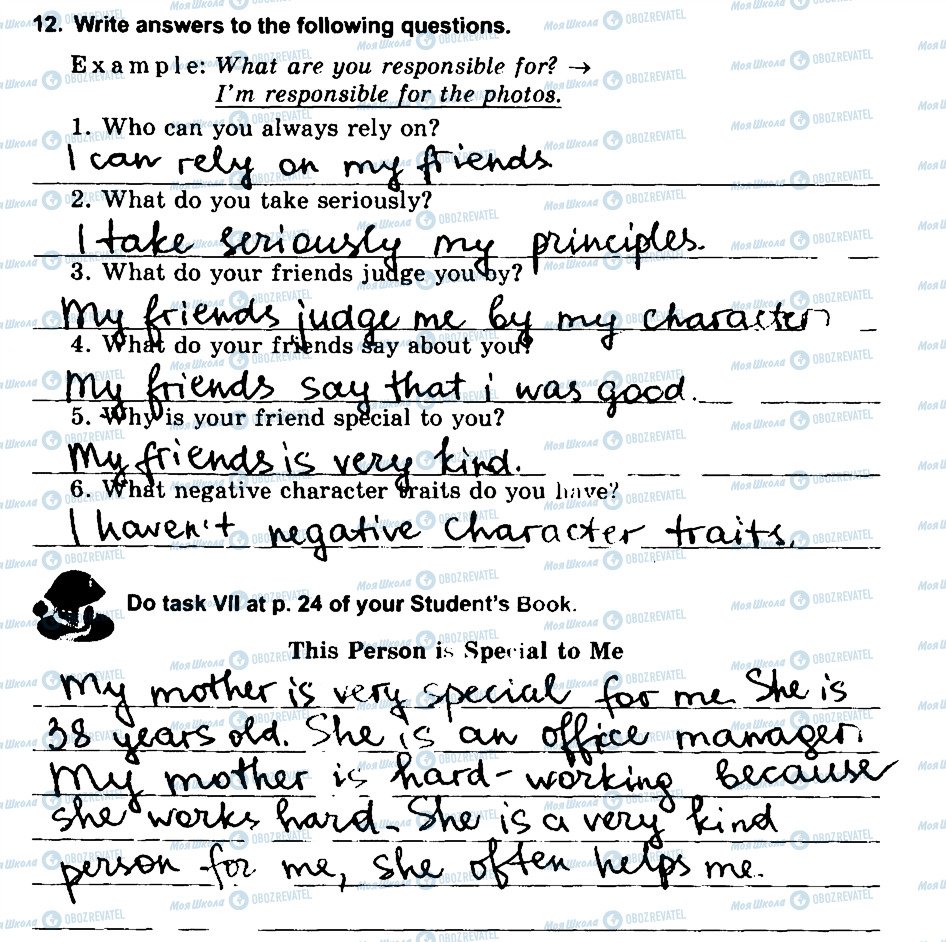 12. Write answers to the following questions.
Example: What are you responsible for? →
I'm responsible for the photos.
1. Who can you always rely on?
I can rely on my friends
2. What do you take seriously?
I take seriously my principles.
3. What do your friends judge you by?
My friends judge me by my character
4. What do your friends say about you?
My friends say that i was good.
5. Why is your friend special to you?
My friends is very kind.
6. What negative character traits do you have?
I haven't negative character traits.
Do task VII at p. 24 of your Student's Book.
This Person is Special to Me
My mother is very special for me. She is
38 years old. She is an office manager.
My mother is hard-working because
she works hard. She is a very kind
person for me, she often helps me.